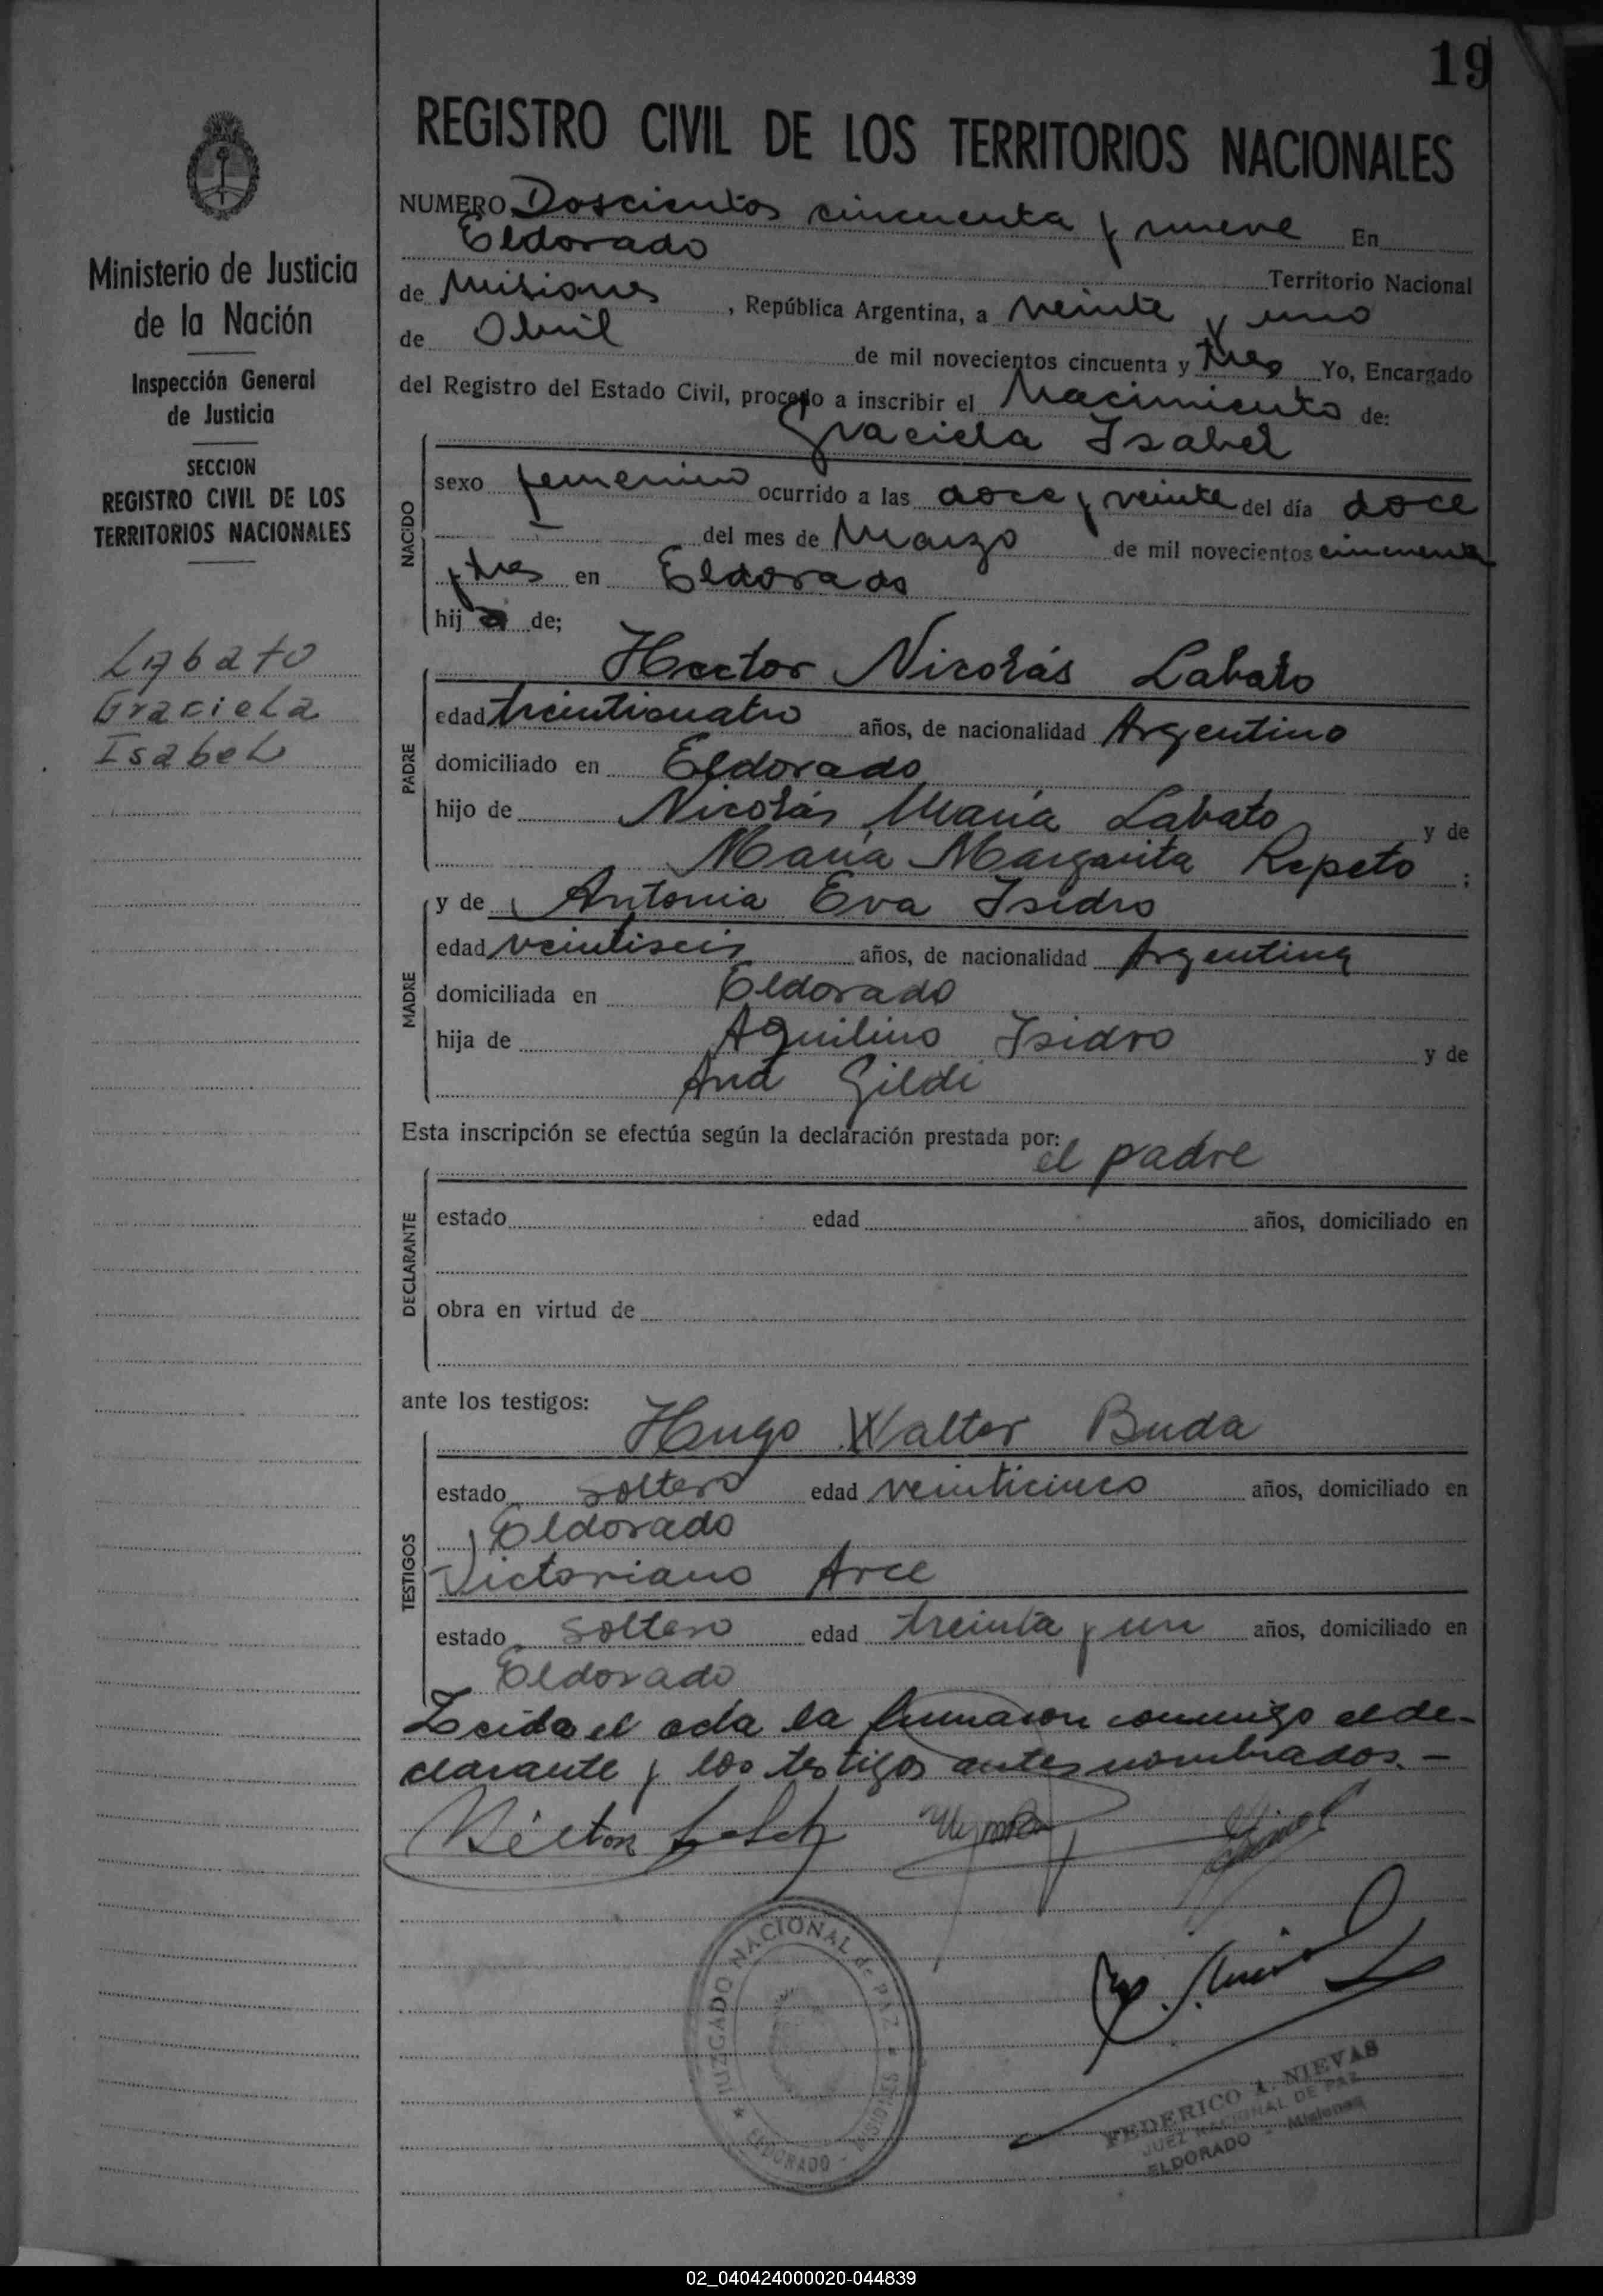 19
REGISTRO CIVIL DE LOS TERRITORIOS NACIONALES
Ministerio de Justicia
de la Nación
Inspección General
de Justicia
SECCION
REGISTRO CIVIL DE LOS
TERRITORIOS NACIONALES
Labato
Graciela
Isabel
NUMERO Doscientos cincuenta y nueve En
Eldorado Territorio Nacional
de Misiones, República Argentina, a veinte y uno
de Abril de mil novecientos cincuenta y tres Yo, Encargado
del Registro del Estado Civil, procedo a inscribir el Nacimiento de:
Graciela Isabel
NACIDO
sexo femenino ocurrido a las doce y veinte del día doce
del mes de Marzo de mil novecientos cincuenta
y tres en Eldorado
hija de;
Hector Nicolás Labato
PADRE
edad treinticuatro años, de nacionalidad Argentino
domiciliado en Eldorado
hijo de Nicolás María Labato y de
María Margarita Repeto ;
MADRE
y de Antonia Eva Isidro
edad veintiseis años, de nacionalidad Argentina
domiciliada en Eldorado
hija de Aquilino Isidro y de
Ana Gildi
Esta inscripción se efectúa según la declaración prestada por:
el padre
DECLARANTE
estado edad años, domiciliado en
obra en virtud de
ante los testigos:
Hugo Walter Buda
TESTIGOS
estado soltero edad veinticinco años, domiciliado en
Eldorado
Victoriano Arce
estado soltero edad treinta y un años, domiciliado en
Eldorado
Leida el acta la firmaron conmigo el de-
clarante y los testigos antes nombrados.-
JUZGADO NACIONAL de PAZ
ELDORADO - MISIONES
FEDERICO A. NIEVAS
JUEZ NACIONAL DE PAZ
ELDORADO - Misiones
02_040424000020-044839